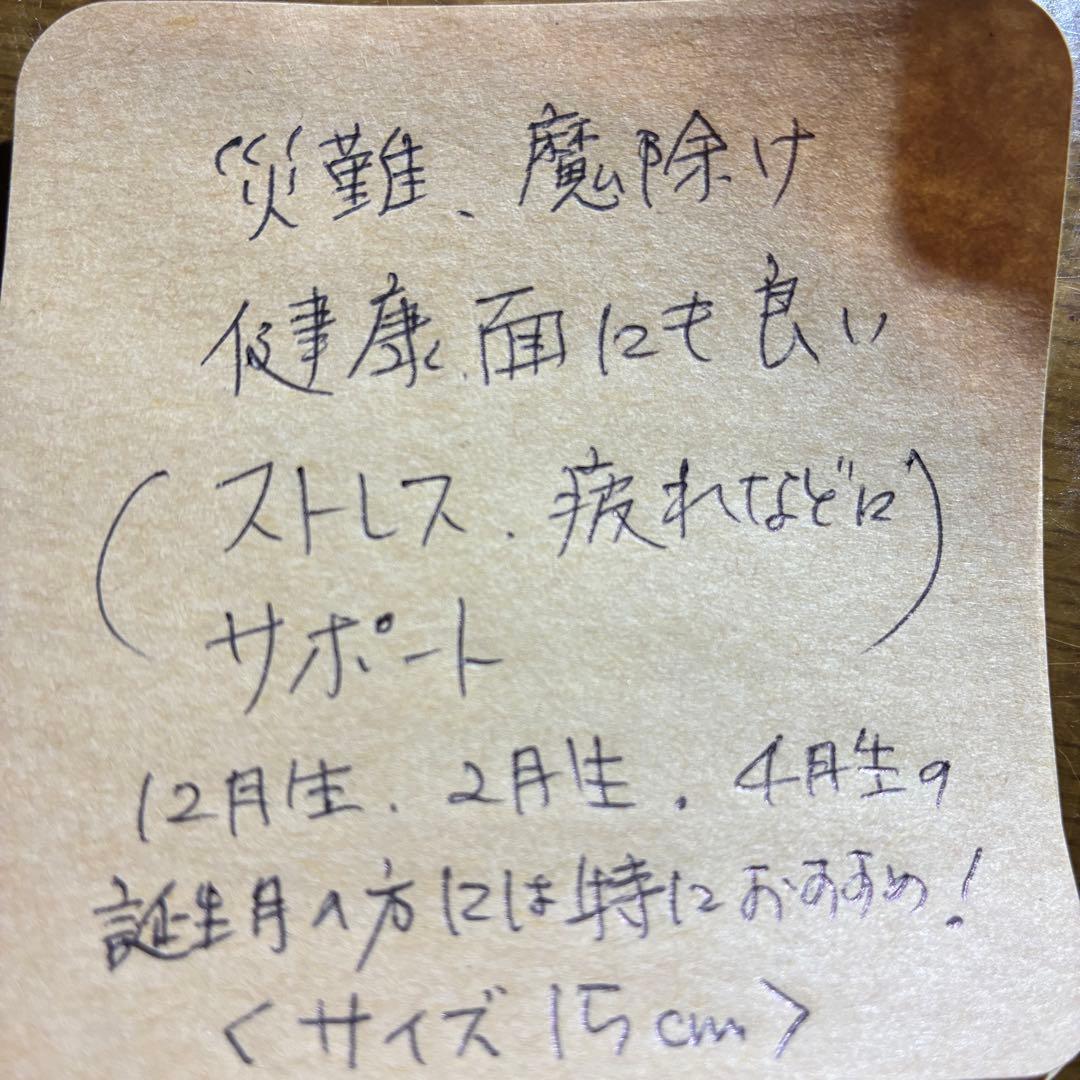 災難、魔除け
健康面にも良い
(ストレス、疲れなどに)
サポート
12月生、2月生、4月生の
誕生月の方には特におすすめ!
<サイズ 15cm>